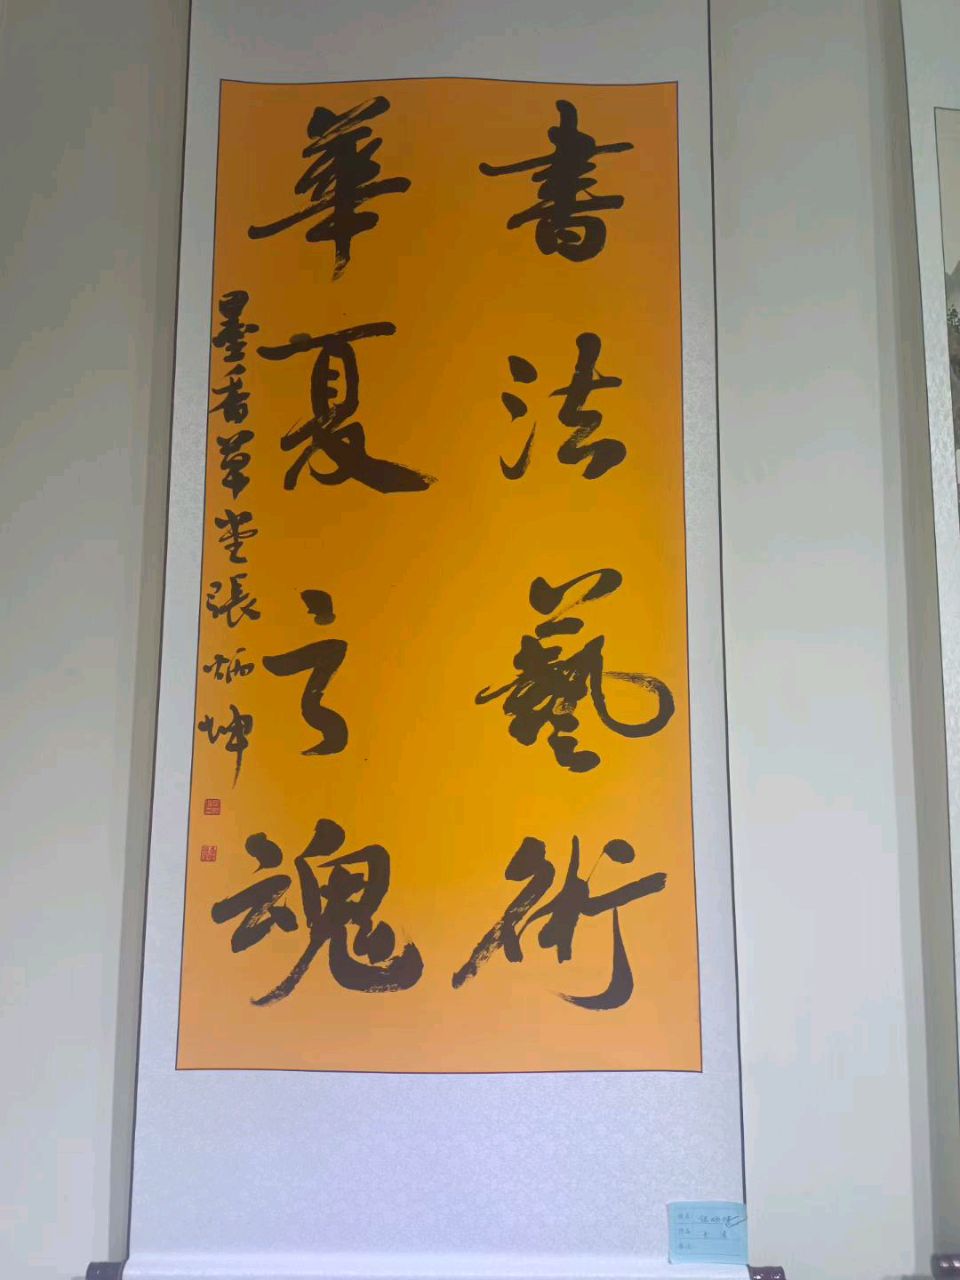 書法藝術
華夏之魂
墨香草堂張炳坤